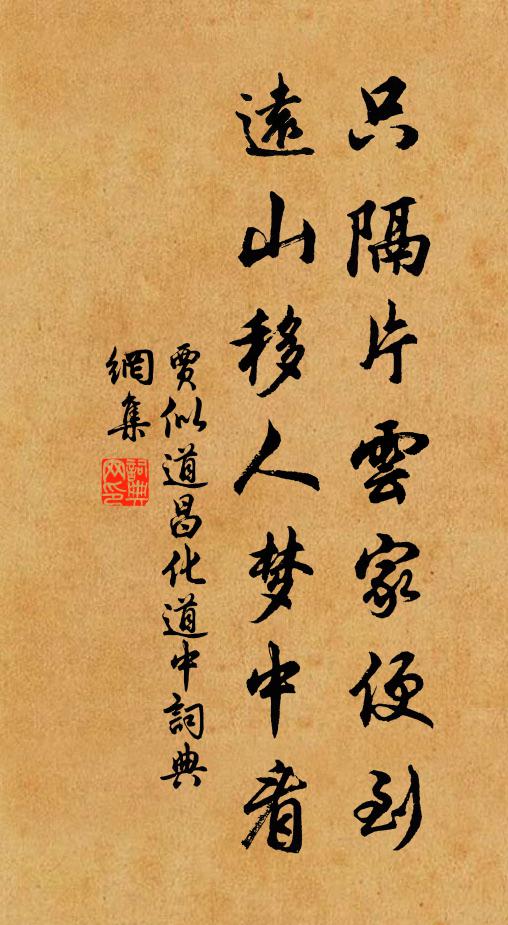 只隔片雲家便到
遠山移人梦中看
賈似道昌化道中詞典
網集
詞典
网印